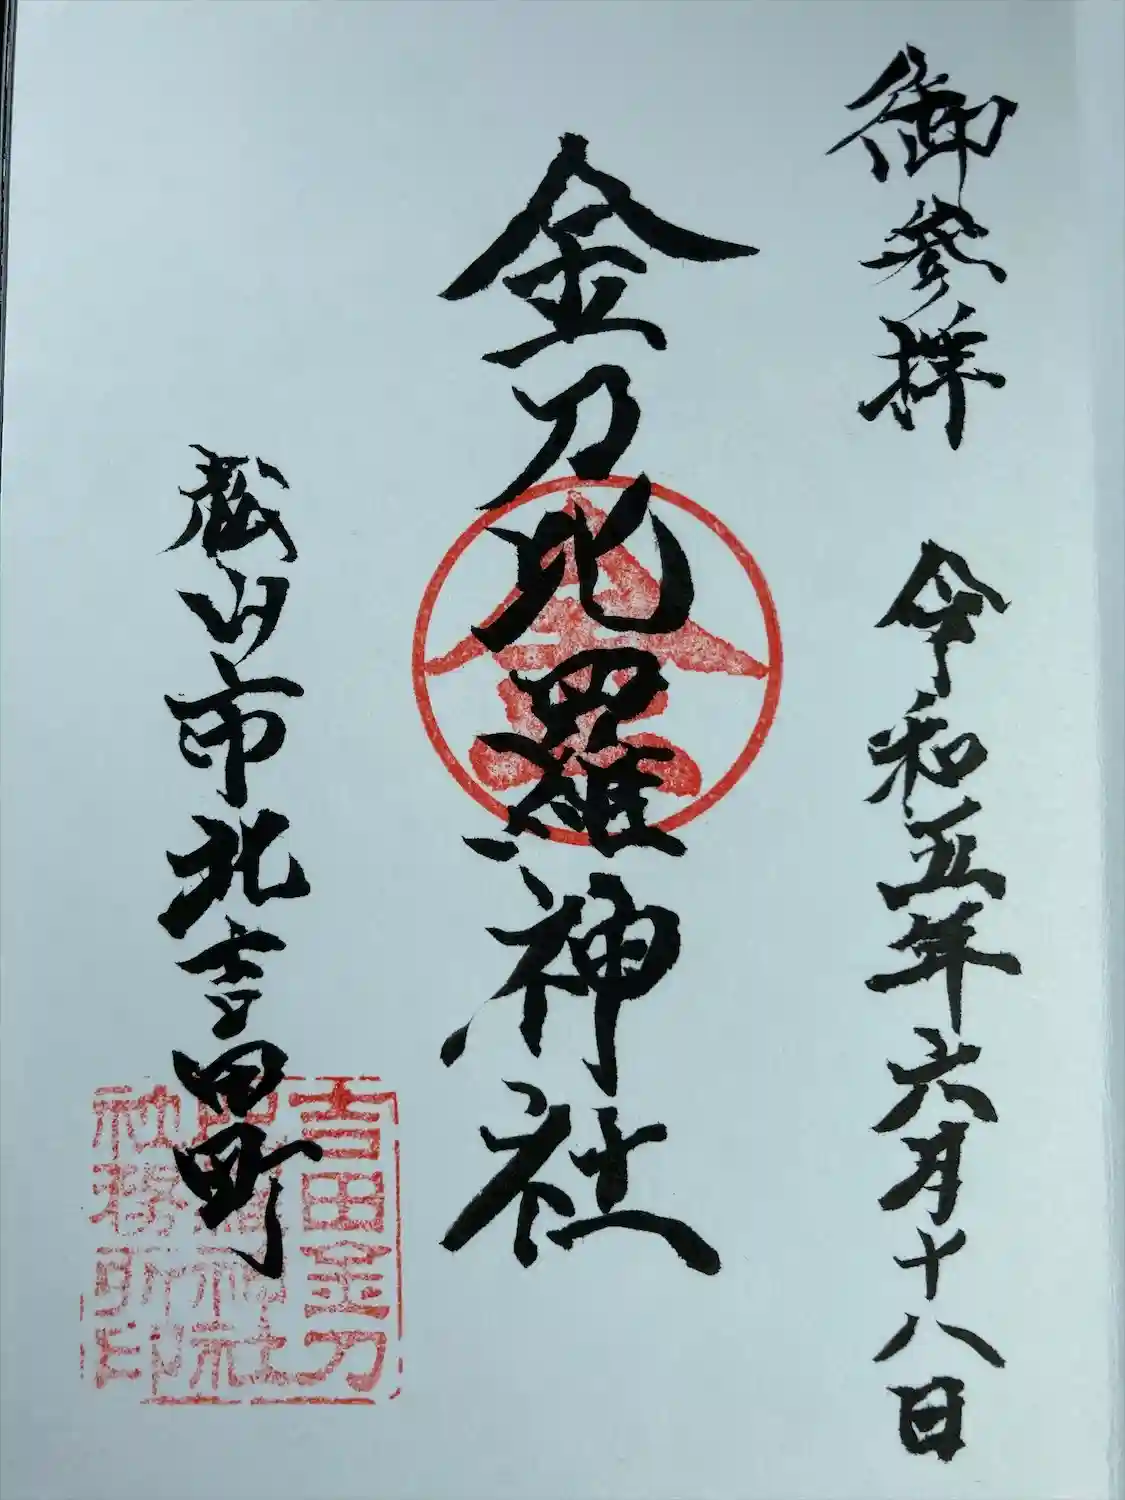 御参拝　令和五年六月十八日
金刀比羅神社
松山市北吉田町
金
吉田金刀
比羅神社
社務所印